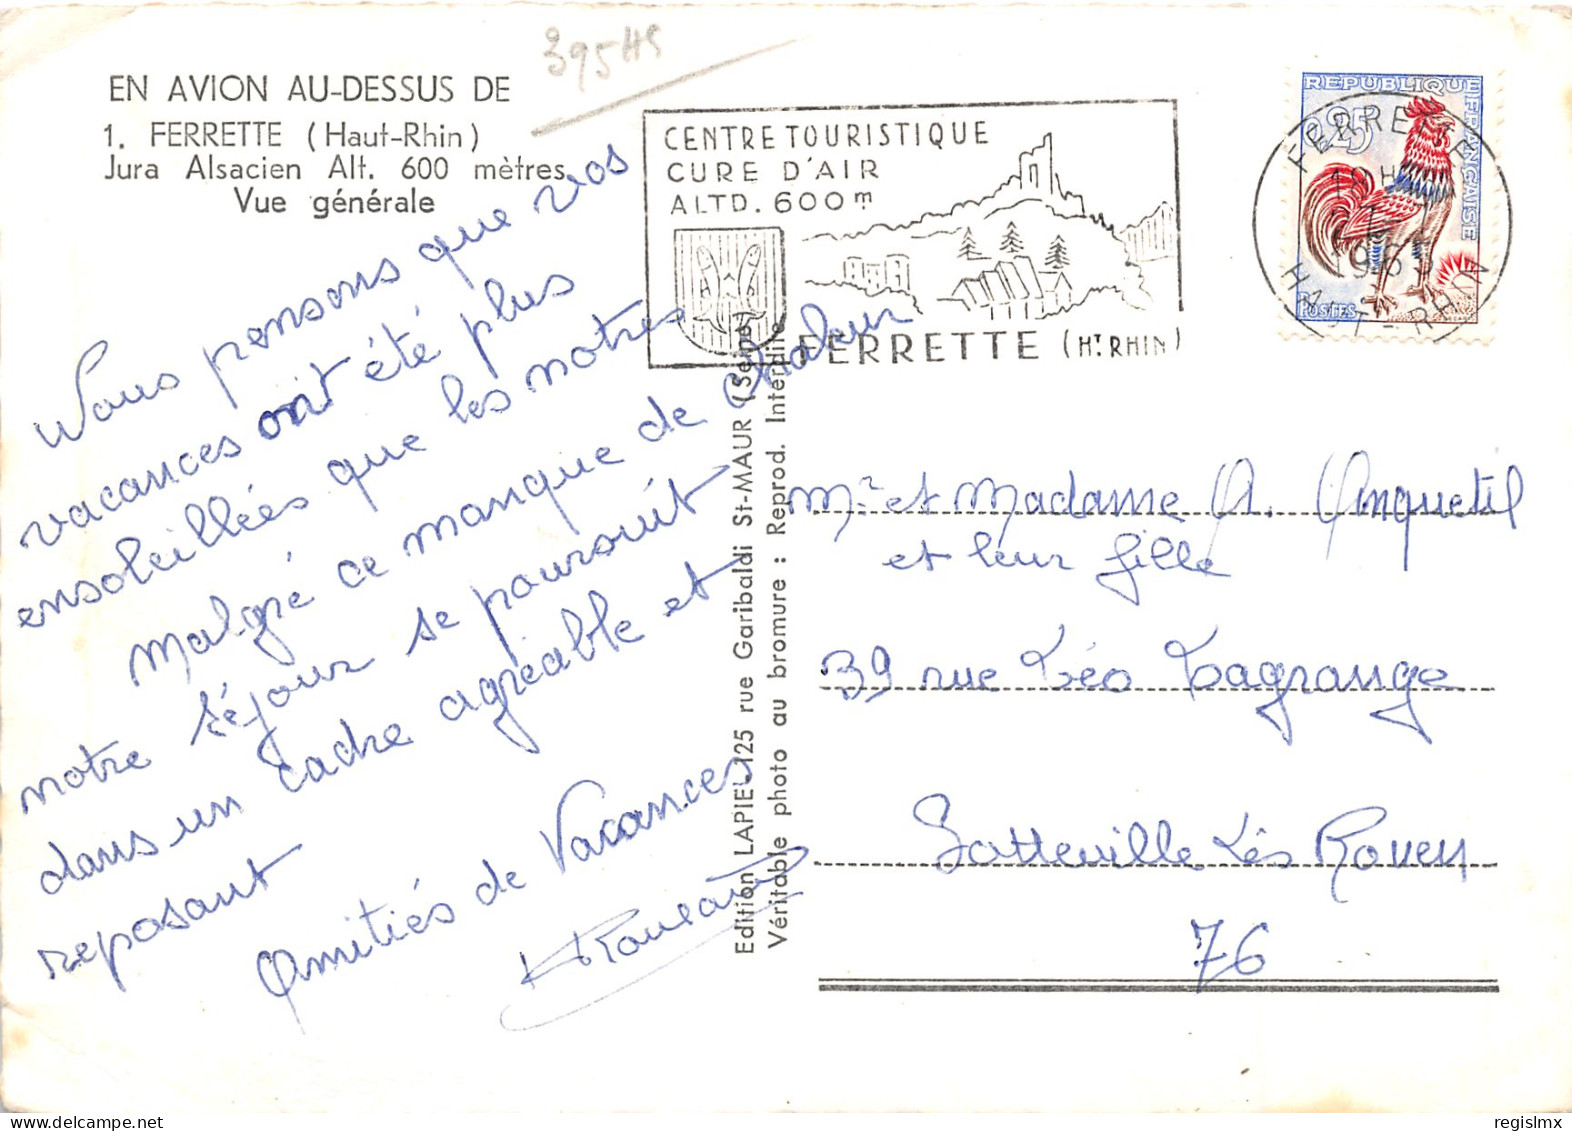 395HS
EN AVION AU-DESSUS DE
1. FERRETTE (Haut-Rhin)
Jura Alsacien Alt. 600 mètres
Vue générale
Nous pensons que vos
vacances ont été plus
ensoleillées que les notres
Malgré ce manque de chaleur
notre séjour se poursuit
dans un cadre agréable et
reposant
Amitiés de Vacances
Edition LAPIE, 125 rue Garibaldi St-MAUR (Seine)
Véritable photo au bromure : Reprod. Interdite
CENTRE TOURISTIQUE
CURE D'AIR
ALTD. 600 m
FERRETTE (HT RHIN)
REPUBLIQUE
FRANÇAISE
0,25
POSTES
FERRETTE
19H
196
HAUT-RHIN
Mr et Madame A. Anquetil
et leur fille
39 rue Léo Lagrange
Sotteville Lès Rouen
76
regislmx